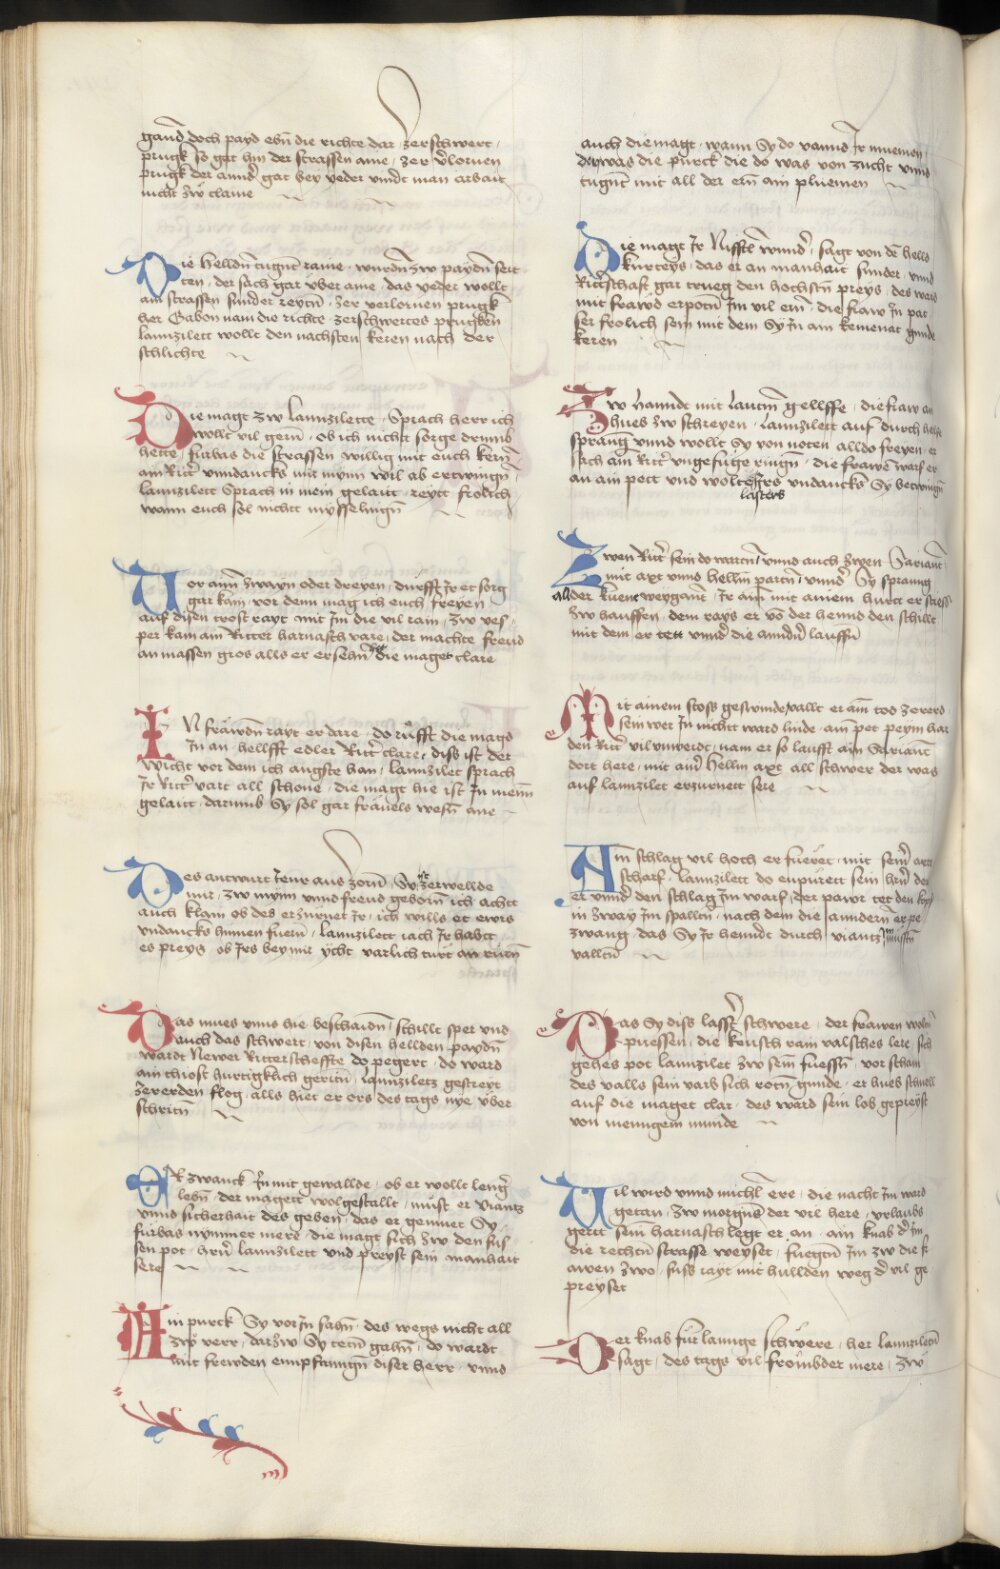 gannd doch payd ebñ die richte dar zerschwert
prugk so gat hin der strassen aine . zer vlornen
prugk der annd gat bey yeder vindt man arbait
nicht zw claine
Die helldñ tugnt raine . wurdñ zw paydñ seit
ten . der sach gar vber aine . das yeder wollt
ain strassen sunder reytñ . zer verlornen prugk
her Gabon nam die richte . zerschwertes prugken
lannzilett wollt den nachsten keren nach der
schlichte
Die magt zw lannzilette . Sprach herr ich
wollt vil gern . ob ich nicht sorge drumb
hette . furbas die strassen willig mit euch kern
ain Ritt vnndancks mit mynn wil ab ertwingñ
lannzilett Sprach in mein gelait . reyt frolich
wann euch sol nicht mysselingñ
Vor ainn zwayn oder dreyen . durfft Ir et sorg
gar kain . vor denn mag ich euch freyen
auf disen trost rayt mit Im die vil rain . zw ves
per kam ain Ritter harnasch vare . der machte freud
an massen gros alls er ersehñ die maget clare
IN frawdñ rayt er dare . do rufft die magd
In an hellfft edler Ritt clare . diss ist der
wicht vor dem ich angste han . lannzilet sprach
Ir Ritt vart all schone . die magt hie ist In meinn
gelait . darumb Sy sol gar frauels wesñ ane
Des antwurt Ienr aus zorn . Sy ist zerwellde
mir . zw mynn vnnd freud geborn ich acht
auch klain ob des erzurnet Ir . ich wills et ewrs
vndancks hinnen fuern . lannzilett iach Ir habtt
es preys ob Irs bey mir ycht varlich turt an ruen
Das mues vnns hie beschaidñ . schillt sper vnd
auch das schwert . von disen hellden paydñ
wardt Newer Ritterscheffte do pegert . do ward
ain thiost hurtigklich geritñ . lannziletz gestrext
zererden flog . alls hiet er ors des tags nye vber
schritñ
Er zwanck In mit gewallde . ob er wollt leng
lebñ . der magett wolgestallt . must er viantz
vnnd sicherhait des geben . das er gemuet Sy
furbas nymmer mere . die magt sich zw den fus
sen pot . hrñ lannzilett vnd preyst sein manhait
sere
Ain purck Sy vor In sahñ . des wegs nicht all
zw verr . darzw Sy tetñ gahñ . do wardt
mit frewden emmpfanngñ diser herr . vnnd
auch die magt . wann Sy do vannd Ir muemen
de was die purck die do was von zucht vnnd
tugnt mit all der ern ain pluemen
Die magt Ir Nifftl wunnd . sagt von de helld
kurteys . das er an manhait sunder . vnnd
Rittschafft gar trueg den hochstñ preys . des ward
mit frawd erpotñ Im vil ern . die fraw In pat
ser frolich sein mit dem Sy In ain kemenat gunde
keren
Zw hannd mit lautm gellffe . die fraw an
hues zw schreyen . lannzilett auf durch helfe
sprang vnnd wollt Sy von noten alldo freyen . er
sach ain Ritt vngefuge ringñ . die frawe warf er
an ain pett vnd wolt Irs vndancks Sy betwingñ
lasters
Zwen Ritt sein do wartñ . vnnd auch zwen Sariant
mit axt vnnd hellm partñ . vnnd Sy spranng
allder kuene weygant . Ir ain mit ainem hurt er stiess
zw hauffen . dem rays er vo der hennd den schillt
mit dem er tett vnnd die annderñ lauffñ
Mit ainem stoss geswinde . vallt er ain tod zererd
sein wer In nicht ward linde . ain pet peym har
den Ritt vil vnwerdt . nam er so laufft ain Sariant
dort here . mit ainr hellm axt all schwer der was
auf lannzilet erzurnett sere
Ain schlag vil hoch er fueret . mit seinr axt
scharf . lannzilett do enpurett sein hrñ der
er vnnd den schlag Im warf . der pawr tet den kopf
in zway Im spalltñ . nach dem die anndern er pe
zwang . das Sy Ir hennde durch viantz Im mustñ
valltñ
Das Sy diss lasst schwere . der frawen wolñ
puessen . die keusch rain valsches lere . sich
gehes pot lannzilet zw sein fuessñ . vor scham
des valls sein varb sich rotñ gunde . er hueb schnell
auf die maget clar . des ward sein lob gepreyst
von mennigem munde
Vil wird vnnd michl ere . die nacht Im ward
getan . zw morgne der vil here . vrlaubs
gertt sein harnasch legt er an . ain knab d Im
die rechtñ strasse weyset . fuegtñ Im zw die fr
awen zwo . suss rayt mit hullden weg d vil ge
preyset
Der knab fur lannge schwere . her lannziletñ
sagt . des tags vil frombder mere . zw